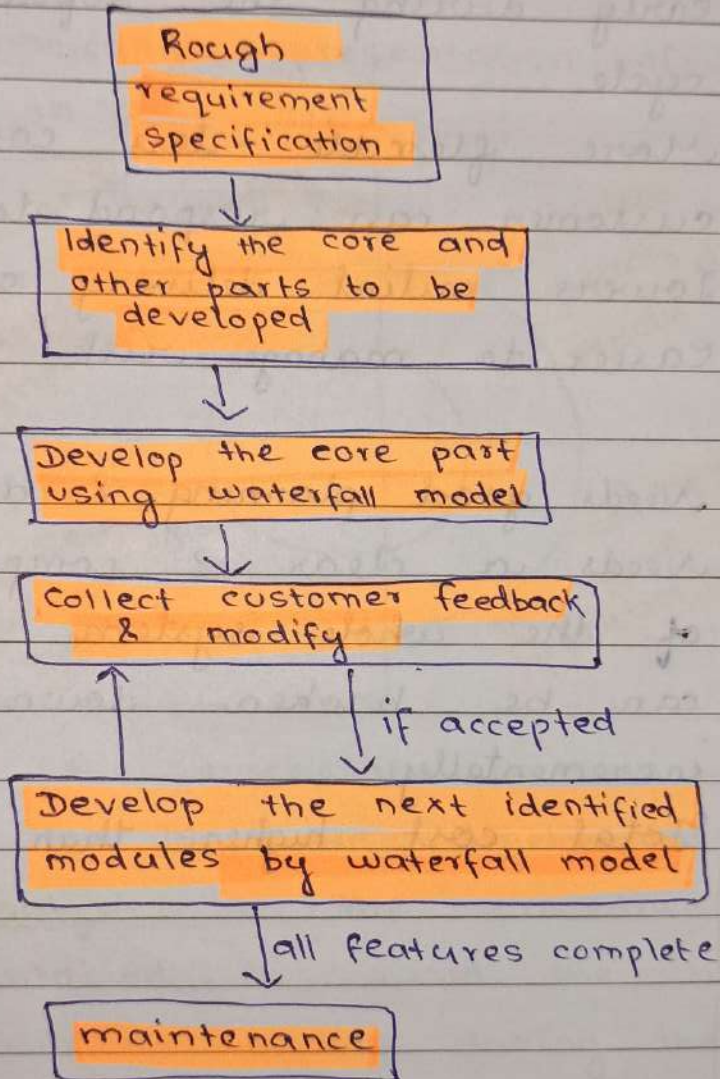 Rough
requirement
specification
Identify the core and
other parts to be
developed
Develop the core part
using waterfall model
Collect customer feedback
& modify
if accepted
Develop the next identified
modules by waterfall model
all features complete
maintenance